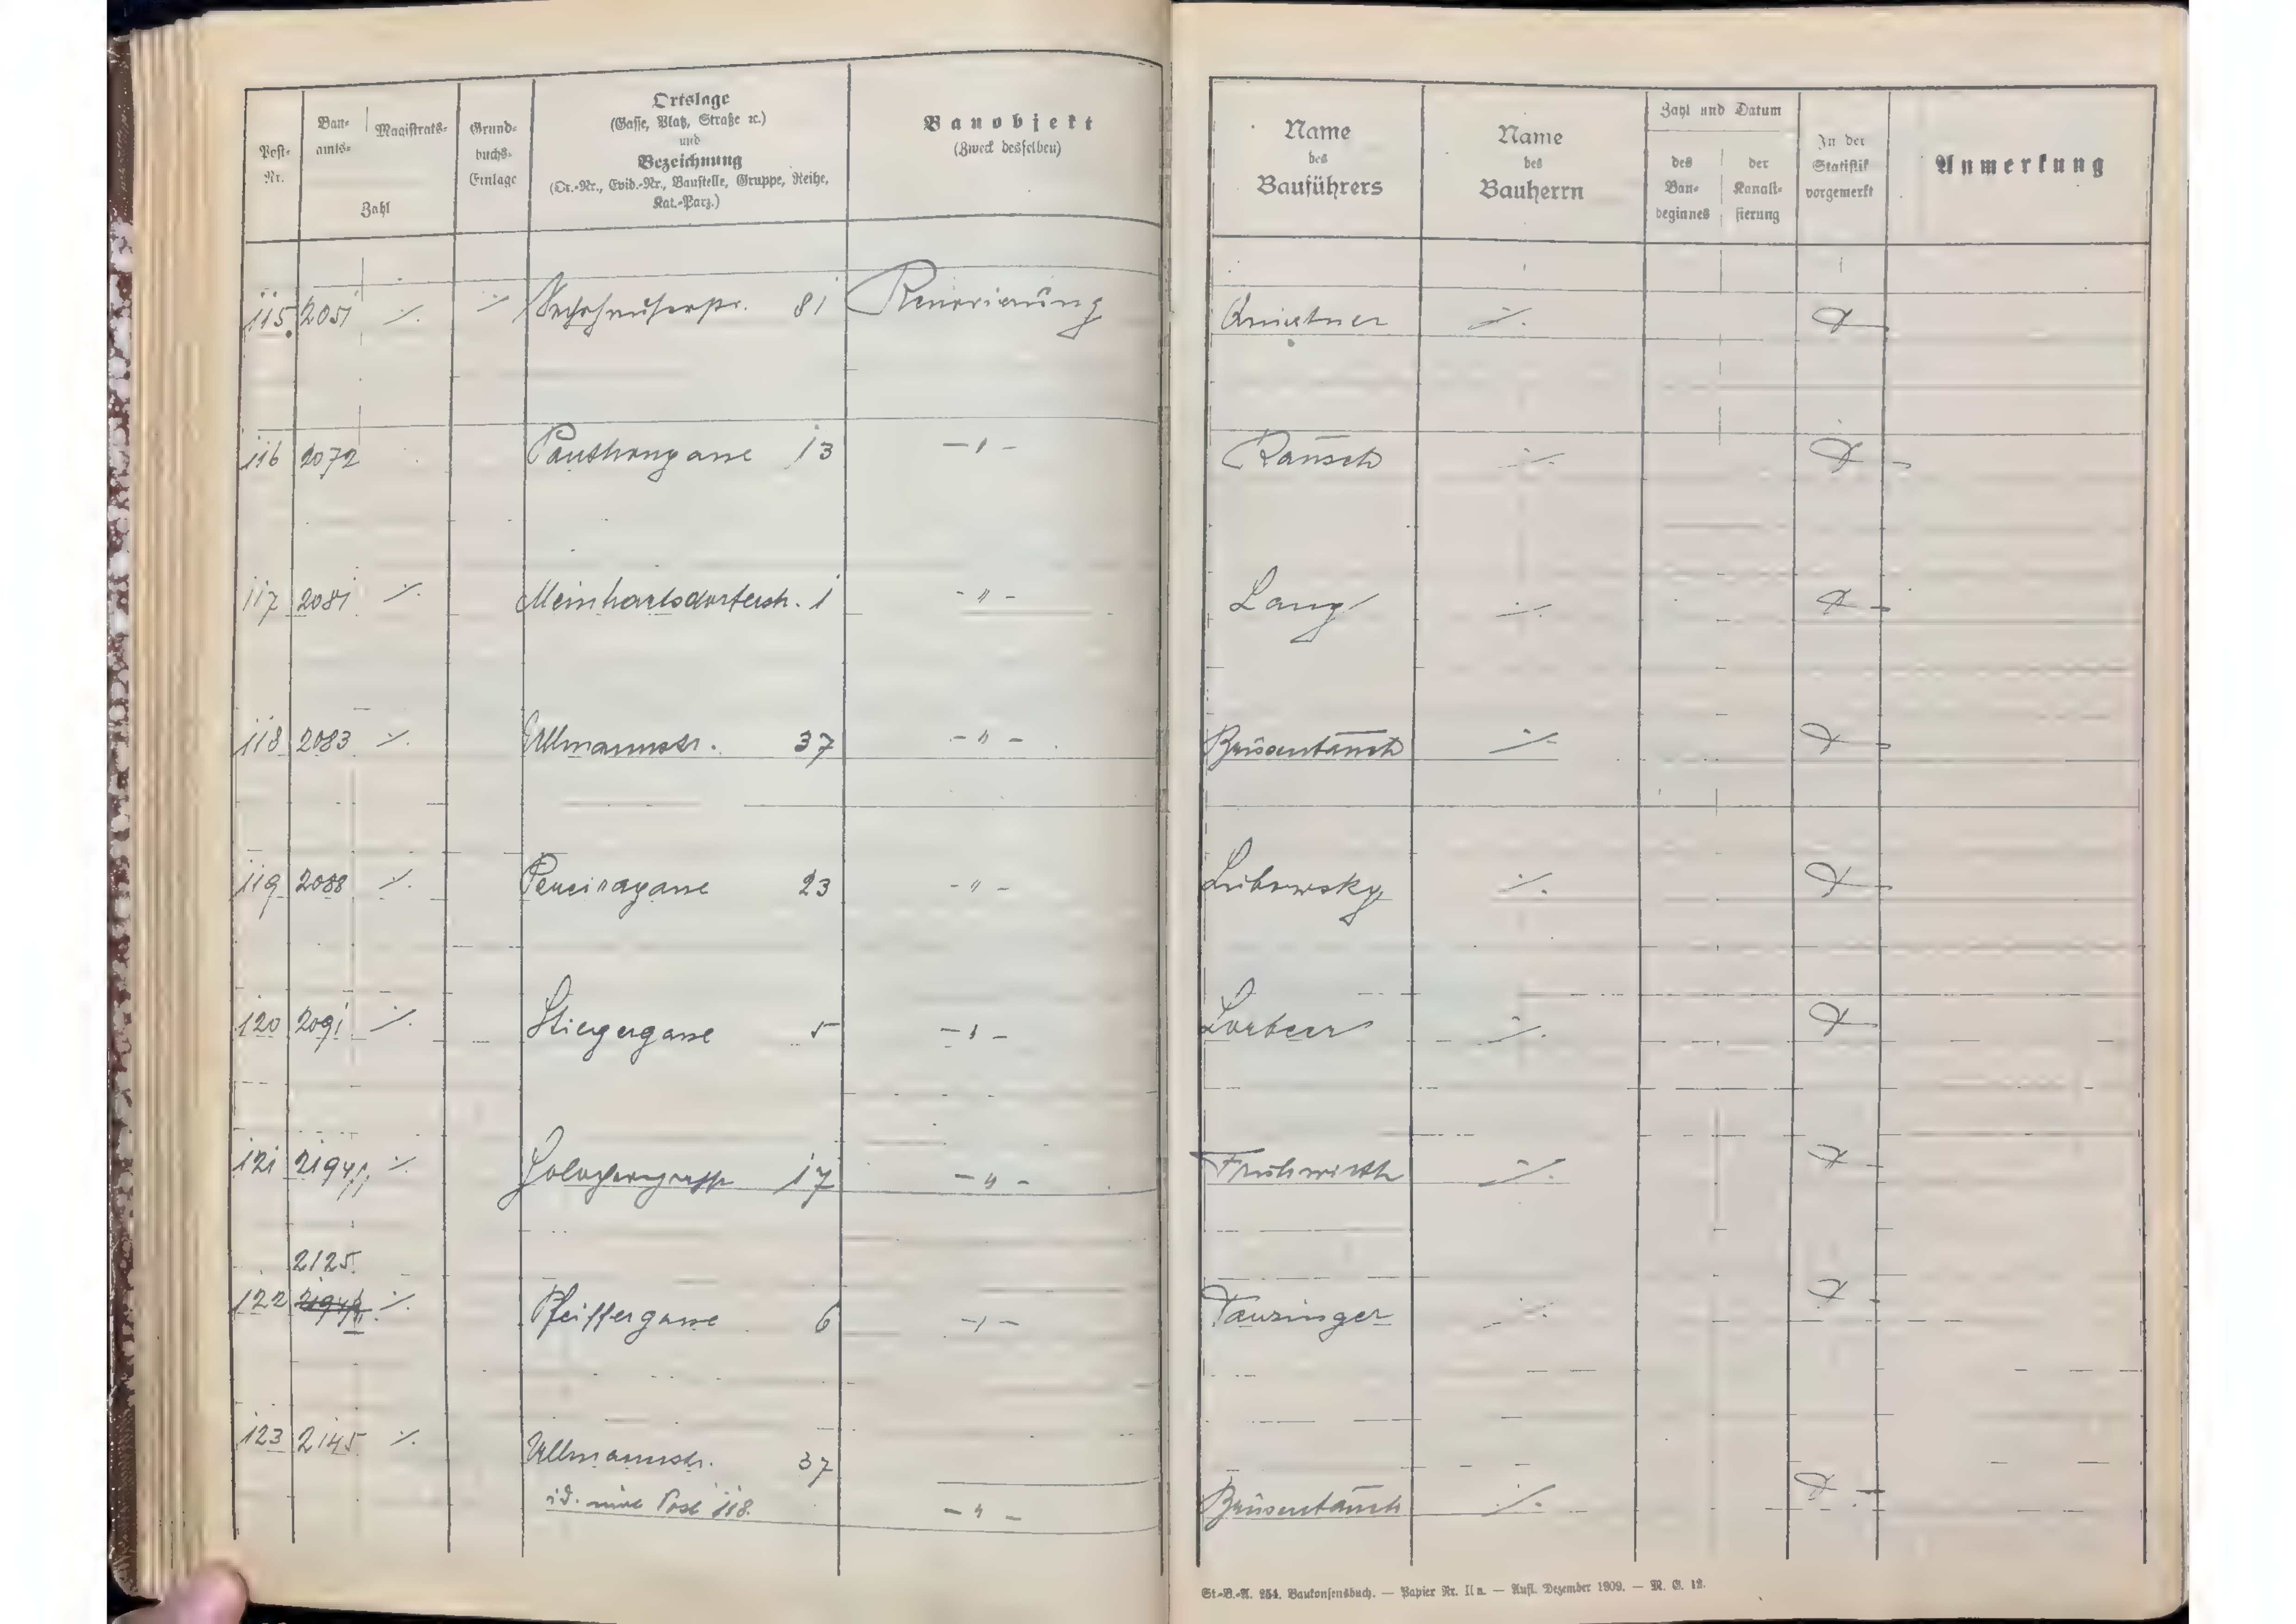 Post-
Nr.
Bau-
amts-
Magistrats-
Zahl
Grund-
buchs-
Einlage
Ortslage
(Gasse, Platz, Straße ꝛc.)
und
Bezeichnung
(Or.-Nr., Evid.-Nr., Baustelle, Gruppe, Reihe,
Kat.-Parz.)
Bauobjekt
(Zweck desselben)
Name
des
Bauführers
Name
des
Bauherrn
Zahl und Datum
des
Bau-
beginnes
der
Kanali-
sierung
In der
Statistik
vorgemerkt
Anmerkung
115. 2051 ./. ./. 81 Renovierung ./.
116 2072 13 - " - Rausch ./.
117 2081 ./. Meinhartsdorferstr. 1 - " - Lang ./.
118 2083 ./. Ullmannstr. 37 - " - ./.
119 2088 ./. Pereiragasse 23 - " - ./.
120 2091 ./. Stiegergasse 5 - " - Lorbeer ./.
121 ./. Holochergasse 17 - " - Frühwirth ./.
2125.
122 ./. Pfeiffergasse 6 - " - Tauzinger ./.
123 2145 ./. Ullmannstr. 37
id. mit Post 118. - " - ./.
St.-B.-A. 254. Baukonsensbuch. — Papier Nr. II a. — Aufl. Dezember 1909. — M. A. 12.